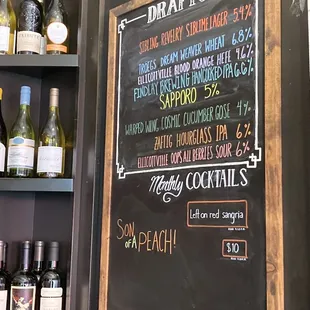 DRAFT
SIBLING REVELRY SIBLIME LAGER 5.4%
TROEGS DREAM WEAVER WHEAT 4.8%
ELLICOTTVILLE BLOOD ORANGE HEFE 4.6%
FINDLAY BREWING PANCORKED IPA 6.6%
SAPPORO 5%
WARPED WING, COSMIC CUCUMBER GOSE 4%
ZAFTIG HOURGLASS IPA 6%
ELLICOTTVILLE OOPS ALL BERRIES SOUR 6%
Monthly COCKTAILS
Left on red sangria
SON OF A PEACH!
$10